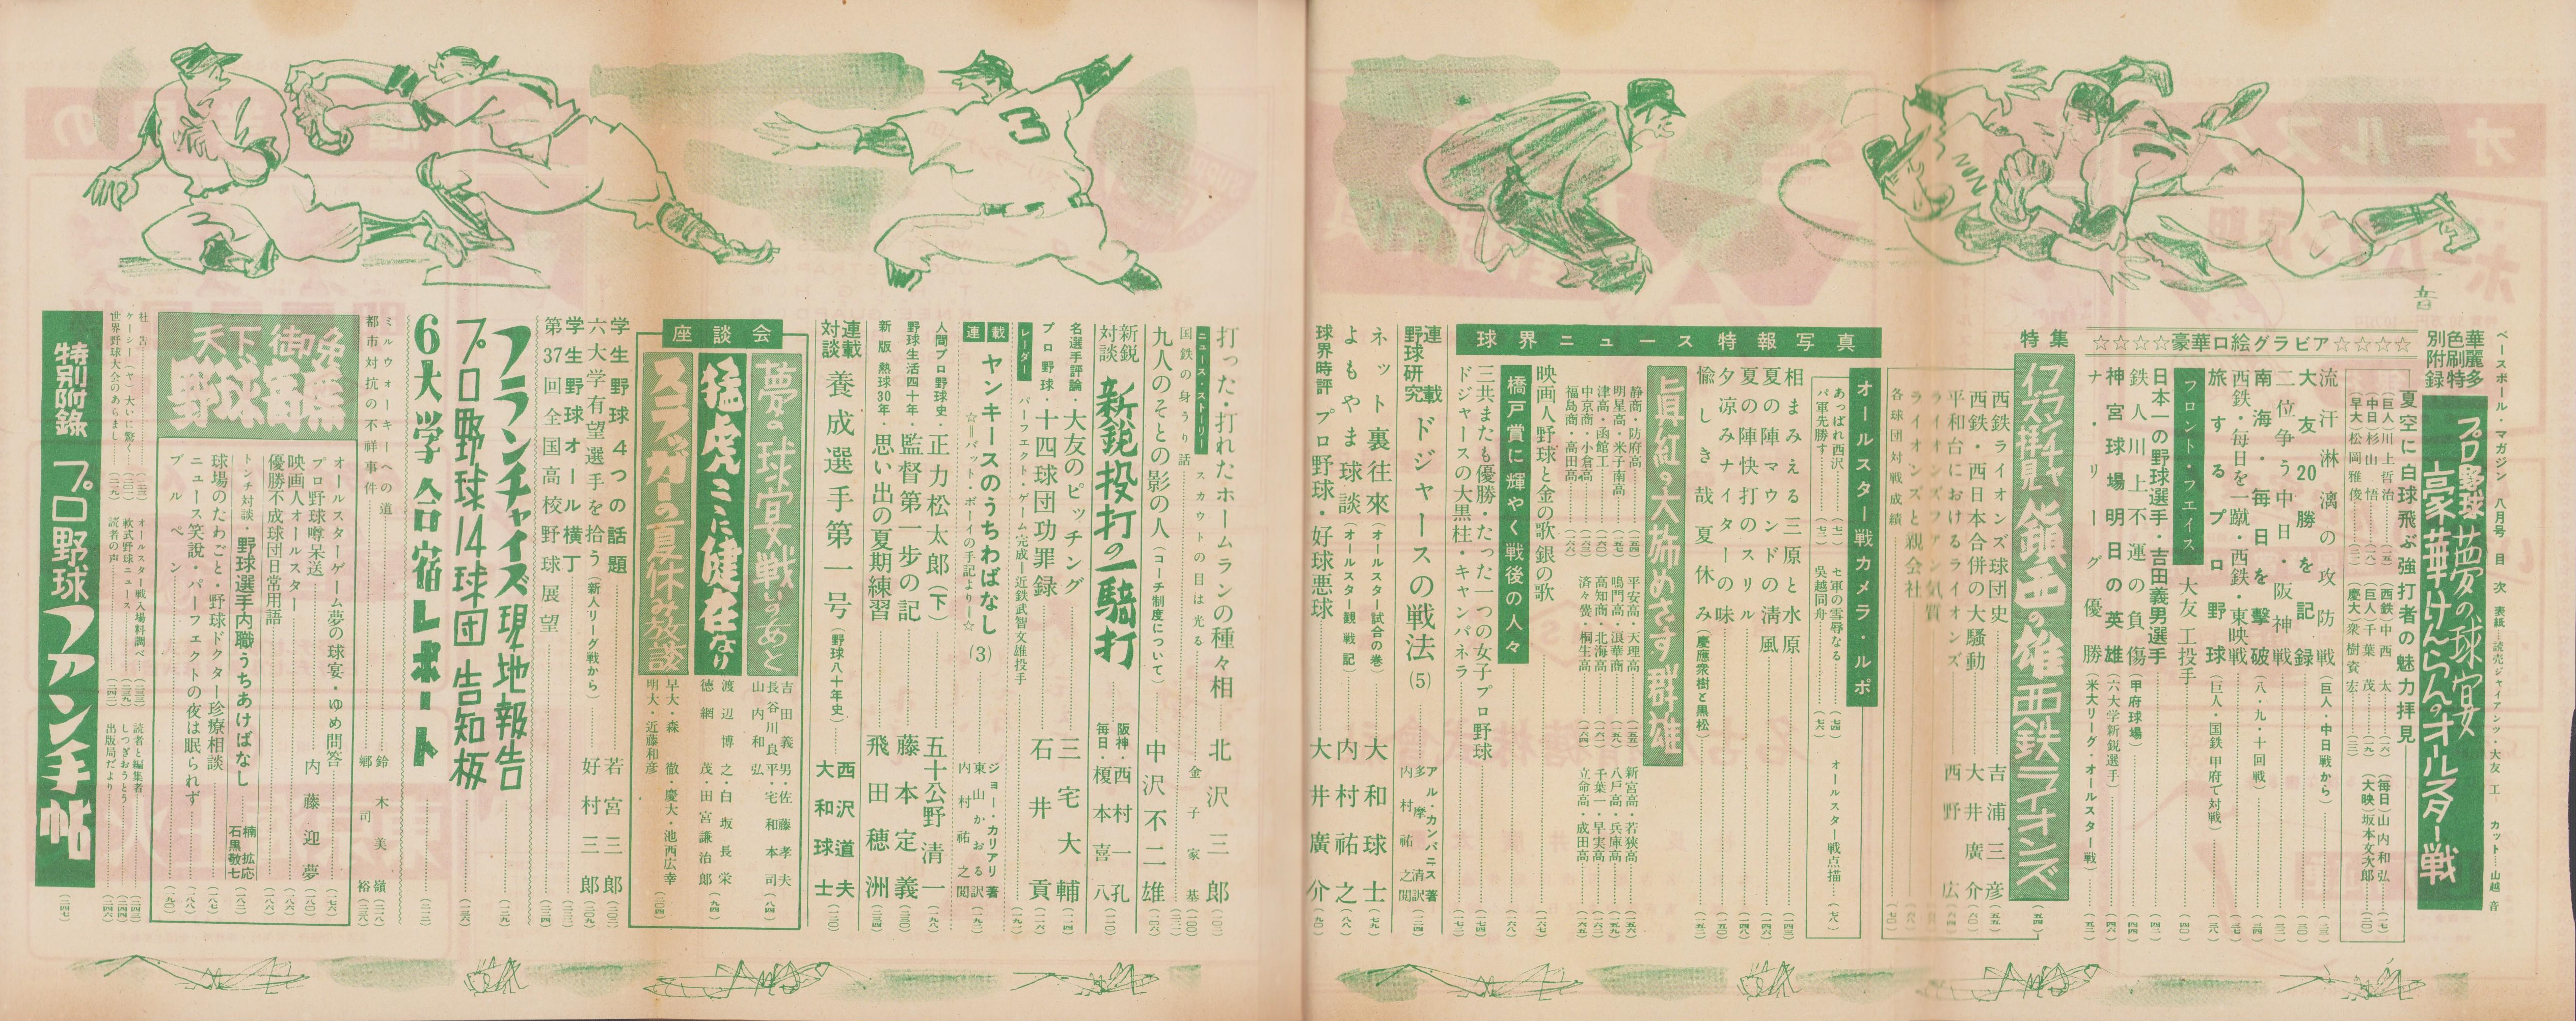 ベースボール・マガジン 八月号 目次 表紙…読売ジャイアンツ・大友 工… カット…山越 音
華麗多色刷特別附録
プロ野球 夢の球宴
豪華けんらんのオールスター戦
☆☆☆☆豪華口絵グラビア☆☆☆☆
夏空に白球飛ぶ強打者の魅力拝見
(巨人)川上哲治
(中日)杉山 悟
(早大)松岡雅俊
(西鉄)中西 太
(巨人)千葉 茂
(慶大)衆樹資宏
(毎日)山内和弘
(大映)坂本文次郎
流汗淋漓の攻防戦(巨人・中日戦から)
大友20勝を記録
二位争う中日・阪神戦
南海・毎日を撃破(八・九・十回戦)
西鉄・毎日を一蹴・西鉄・東映戦
旅するプロ野球(巨人・国鉄 甲府で対戦)
フロント・フエイス 大友 工投手
日本一の野球選手・吉田義男選手
鉄人川上不運の負傷(甲府球場)
神宮球場明日の英雄(六大学新鋭選手)
ナ・リーグ優勝(米大リーグ・オールスター戦)
特集
フランチャイズ拝見 鎮西の雄西鉄ライオンズ
西鉄ライオンズ球団史 吉浦三彦
西鉄・西日本合併の大騒動 大井廣介
平和台におけるライオンズ 西野 広
ライオンズファン気質
ライオンズと親会社
各球団対戦成績
オールスター戦カメラ・ルポ
あっぱれ西沢
パ軍先勝す
セ軍の雪辱なる
呉越同舟
オールスター戦点描
球界ニュース特報写真
相まみえる三原と水原
夏の陣マウンドの清風
夏の陣快打のスリル
夕凉みナイターの味
愉しき哉夏休み(慶應衆樹と黒松)
眞紅の大旆めざす群雄
静商・防府高
明星高・米子南高
津高・函館工
中京商・小倉高
福島商・高田高
平安高・天理高
鳴門高・浪華商
高知商・北海高
済々黌・桐生高
新宮高・若狭高
八戸高・兵庫高
千葉一・早実高
立命高・成田高
映画人野球と金の歌銀の歌
橋戸賞に輝やく戦後の人々
三共またも優勝・たった一つの女子プロ野球
ドジャースの大黒柱・キャンパネラ
連載野球研究 ドジャースの戦法(5) アル・カンパニス著 多摩 清訳 内村祐之閲
ネット裏往來(オールスター試合の巻) 大和球士
よもやま球談(オールスター観戦記) 内村祐之
球界時評 プロ野球・好球悪球 大井廣介
打った・打れたホームランの種々相 北沢三郎
ニュース・ストーリー 国鉄の身うり話 スカウトの目は光る 金子家基
九人のそとの影の人(コーチ制度について) 中沢不二雄
新鋭対談 新鋭投打の一騎打 阪神・西村一孔 毎日・榎本喜八
名選手評論・大友のピッチング 三宅大輔
プロ野球・十四球団功罪録 石井 貢
レーダー パーフェクト・ゲーム完成=近鉄武智文雄投手
連載 ヤンキースのうちわばなし(3) ジョー・カリアリ著 東山かおる訳 内村祐之閲
☆=バット・ボーイの手記より=☆
人間プロ野球史・正力松太郎(下) 五十公野清一
野球生活四十年・監督第一歩の記 藤本定義
新版 熱球30年・思い出の夏期練習 飛田穂洲
連載対談 養成選手第一号(野球八十年史) 西沢道夫 大和球士
座談会
夢の球宴戦いのあと
吉田義男・佐藤孝夫
長谷川良平・宅和本司
山内和弘
猛虎ここに健在なり
渡辺博之・白坂長栄
徳網 茂・田宮謙治郎
スラッガーの夏休み放談
早大・森 徹・慶大・池西広幸
明大・近藤和彦
学生野球4つの話題 若宮三郎
六大学有望選手を拾う(新人リーグ戦から) 好村三郎
学生野球オール横丁
第37回全国高校野球展望
フランチャイズ現地報告
プロ野球14球団告知板
6大学合宿レポート
ミルウォーキーへの道 鈴木美嶺
都市対抗の不祥事件 郷司 裕
天下御免 野球寄席
オールスターゲーム夢の球宴・ゆめ問答 内藤迎夢
プロ野球噂呆送
映画人オールスター
優勝不成球団日常用語
トンチ対談・野球選手内職うちあけばなし 楠 拡応 石黒敬七
球場のたわごと・野球ドクター珍療相談
ニュース笑説・パーフェクトの夜は眠られず
ブルペン
社告
ケーシー(ヤ)大いに驚く
世界野球大会のあらまし
オールスター戦入場料調べ
軟式野球ニュース
読者の声
読者と編集者
しつぎおうとう
出版局だより
特別附録 プロ野球ファン手帖